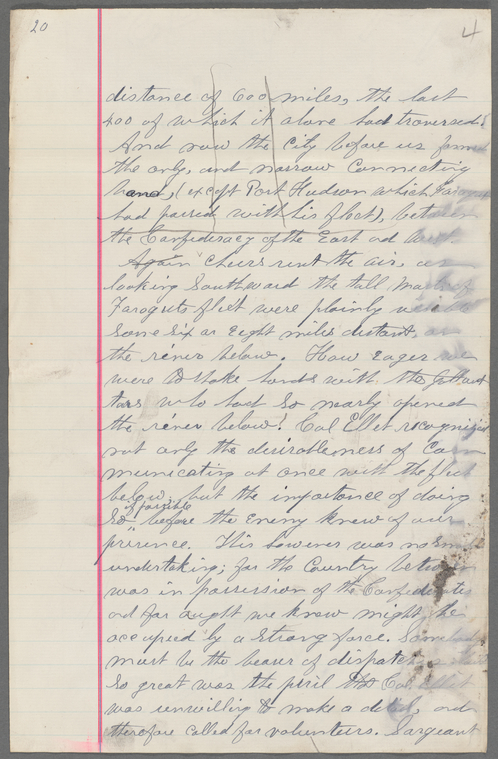 20
4
distance of 600 miles, the last
400 of which it alone had traversed.
And now the City before us formed
the only, and narrow connecting
band, (except Port Hudson which Faragut
had passed with his fleet), between
the Confederacy of the East and West.
Again cheers rent the air, as
looking Southward the tall masts of
Faraguts fleet were plainly visible
some six or eight miles distant, on
the river below. How eager we
were to shake hands with the gallant
tars who had so nearly opened
the river below! Col Ellet recognized
not only the desirableness of Com
municating at once with the fleet
below, but the importance of doing
if possible
so before the Enemy knew of our
presence. This however was no small
undertaking; for the Country between
was in possession of the Confederates
and for aught we knew might be
occupied by a strong force. Somebody
must be the bearer of dispatches
So great was the peril that Col. Ellet
was unwilling to make a detail, and
therefore called for volunteers. Sargeant